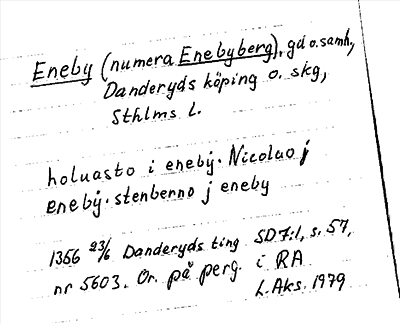 Eneby (numera Enebyberg), gd o. samh,
Danderyds köping o. skg,
Sthlms l.
holuasto i eneby. Nicoluo j
eneby. stenberno j eneby
1356 23/6 Danderyds ting SD 7:1, s. 57,
nr 5603. Or. på perg. i RA
L. Aks. 1979